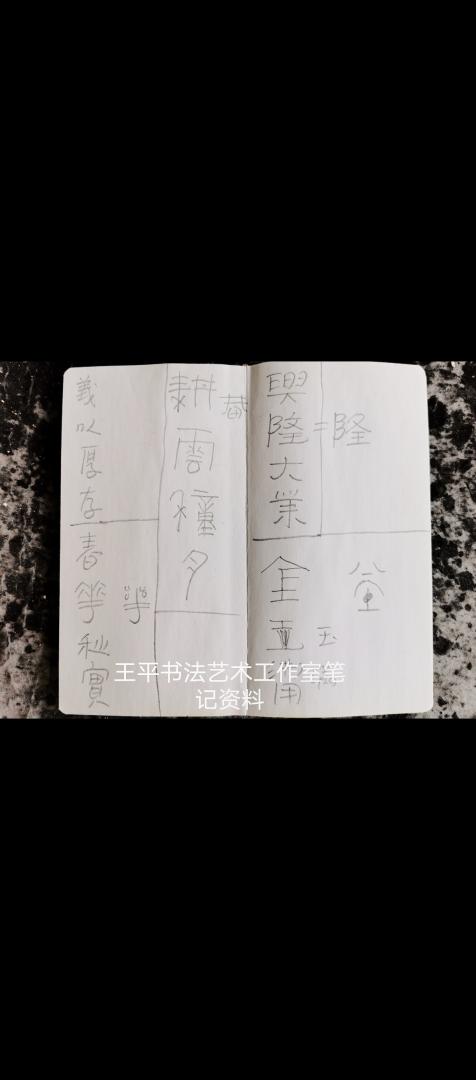 興隆大業
=隆
金
玉
耕雲種月
義以厚存
春華秋實
王平书法艺术工作室笔
记资料